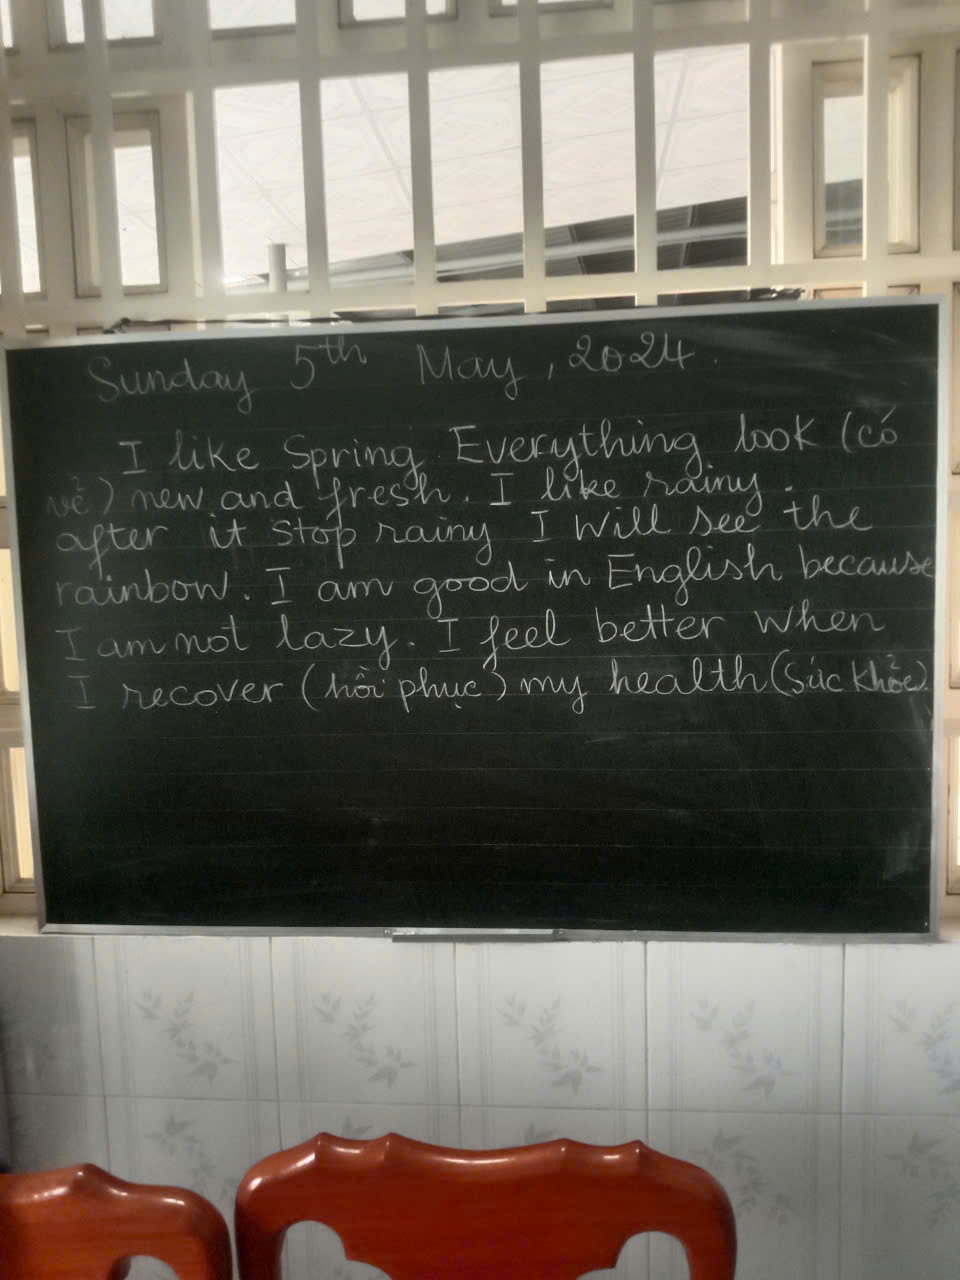 Sunday 5th May, 2024.
I like Spring. Everything look (có
vẻ) new and fresh. I like rainy.
after it stop rainy I will see the
rainbow. I am good in English because
I am not lazy. I feel better when
I recover (hồi phục) my health (Sức khỏe)